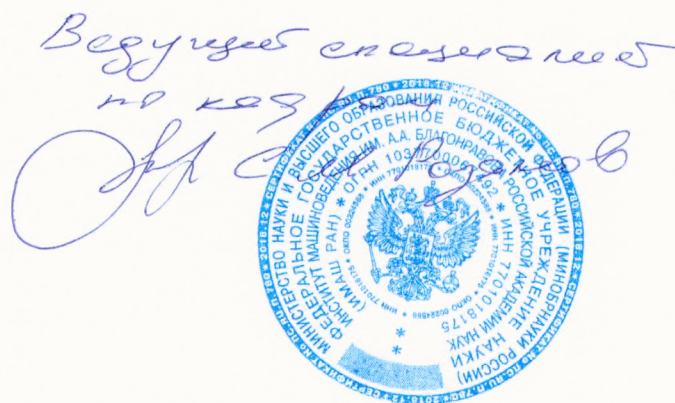 Ведущий специалист
по кадрам
СЕРТИФИКАТ № РС.RU.П.780 * 2018.12 *
МИНИСТЕРСТВО НАУКИ И ВЫСШЕГО ОБРАЗОВАНИЯ РОССИЙСКОЙ ФЕДЕРАЦИИ (МИНОБРНАУКИ РОССИИ)
ФЕДЕРАЛЬНОЕ ГОСУДАРСТВЕННОЕ БЮДЖЕТНОЕ УЧРЕЖДЕНИЕ НАУКИ
ИНСТИТУТ МАШИНОВЕДЕНИЯ ИМ. А.А. БЛАГОНРАВОВА РОССИЙСКОЙ АКАДЕМИИ НАУК
(ИМАШ РАН) * ОГРН * ИНН 7701018175
* ИНН 7701018175 * ОКПО 00224588